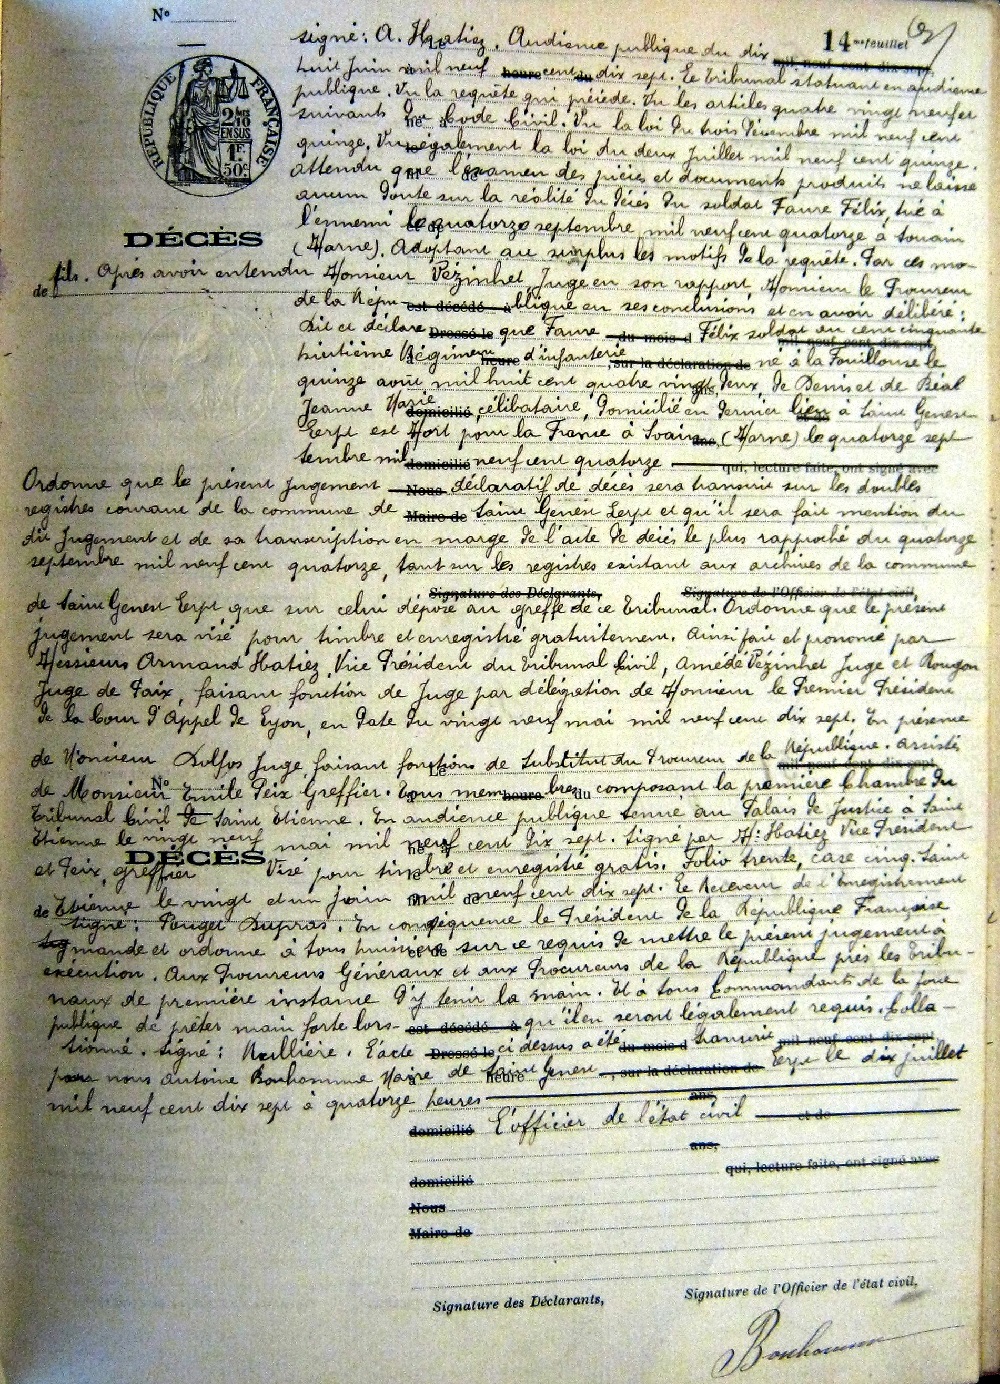 N°
14me feuillet
RÉPUBLIQUE FRANÇAISE
2/10 EN SUS
1F. 50c.
signé: A. Hatiez. Audience publique du dix
huit Juin mil neuf cent dix sept. Le Tribunal statuant en audience
publique. Vu la requête qui précède. Vu les articles quatre vingt neuf et
suivants du Code Civil. Vu la loi du trois Décembre mil neuf cent
quinze. Vu également la loi du deux Juillet mil neuf cent quinze.
attendu que l'examen des pièces et documents produits ne laisse
aucun doute sur la réalité du décès du soldat Faure Félix, tué à
l'ennemi le quatorze septembre mil neuf cent quatorze à Souain
DÉCÈS
(Marne). Adoptant au surplus les motifs de la requête. Par ces mo-
de fils. Après avoir entendu Monsieur Vézinhet, Juge en son rapport, Monsieur le Procureur
de la Répu est décédé à blique en ses conclusions et en avoir délibéré;
Dit et déclare Dressé le que Faure du mois d Félix soldat au cent cinquante
mil neuf cent dix sept,
huitième Régiment heure d'infanterie, sur la déclaration de né à la Fouillouse le
quinze août mil huit cent quatre vingt ans, deux, de Denis et de Béal
Jeanne Marie domicilié célibataire, domicilié en dernier lieu à Saint Genest
Lerpt est Mort pour la France à Soain ans, (Marne) le quatorze sept
tembre mil domicilié neuf cent quatorze qui, lecture faite, ont signé avec
Ordonne que le présent Jugement Nous déclaratif de décès sera transcrit sur les doubles
registres courant de la commune de Maire de Saint Genest Lerpt et qu'il sera fait mention du
dit Jugement et de sa transcription en marge de l'acte de décès le plus rapproché du quatorze
septembre mil neuf cent quatorze, tant sur les registres existant aux archives de la commune
Signature des Déclarants, Signature de l'Officier de l'état civil,
de Saint Genest Lerpt que sur celui déposé au greffe de ce Tribunal. Ordonne que le présent
jugement sera visé pour timbre et enregistré gratuitement. Ainsi fait et prononcé par
Messieurs Armand Hatiez, Vice Président du Tribunal Civil, Amédé Vézinhet Juge et Rougon
Juge de Paix, faisant fonction de Juge par délégation de Monsieur le Premier Président
de la Cour d'Appel de Lyon, en date du vingt neuf mai mil neuf cent dix sept. En présence
de Monsieur Dolfus Juge, faisant fonctions de Substitut du Procureur de la République. assistés
N° Le mil neuf cent dix sept,
de Monsieur Emile Peix Greffier. Tous mem heure bres du composant la première Chambre du
Tribunal Civil de Saint Etienne. En audience publique tenue au Palais de Justice à Saint
Etienne le vingt neuf mai mil neuf cent dix sept. Signé par M: Hatiez Vice Président
DÉCÈS
et Peix, greffier Visé pour timbre et enregistré gratis. Folio trente, case cinq. Saint
de Etienne le vingt et un Juin mil neuf cent dix sept. Le Receveur de l'Enregistrement
signé: Pouget Dupras. En conséquence le Président de la République Française
mande et ordonne à tous huissiers sur ce requis de mettre le présent jugement à
exécution. Aux Procureurs Généraux et aux Procureurs de la République près les Tribu-
naux de première instance d'y tenir la main. Et à tous Commandants de la force
publique de prêter main forte lors- est décédé à qu'ils en seront légalement requis. Colla-
tionné. signé: Rullière. L'acte Dressé le ci dessus a été du mois d transcrit mil neuf cent dix sept,
par nous Antoine Bonhomme Maire de heure Saint Genest , sur la déclaration de Lerpt le dix Juillet
mil neuf cent dix sept à quatorze heures ans,
domicilié L'officier de l'état civil et de
ans,
domicilié qui, lecture faite, ont signé avec
Nous
Maire de
Signature des Déclarants, Signature de l'Officier de l'état civil,
Bonhomme